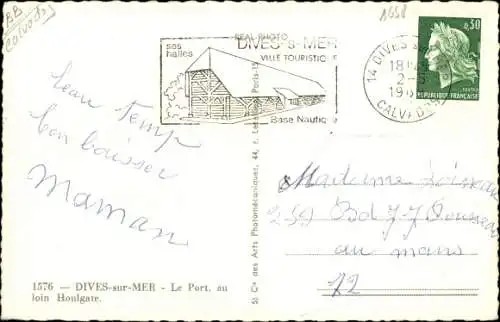 BB
Calvados
1658
REAL-PHOTO
ses
halles
DIVES-s-MER
VILLE TOURISTIQUE
Base Nautique
14 DIVES
18
2-
19
CALVADOS
0,30
REPUBLIQUE FRANÇAISE
beau temp
bon baiser
Maman
Madame Loiseau
259 Bd JJ Rousseau
au mans
72
1576 — DIVES-sur-MER - Le Port, au
loin Houlgate.
Sté Cie des Arts Photomécaniques, 44, r. Paris-15